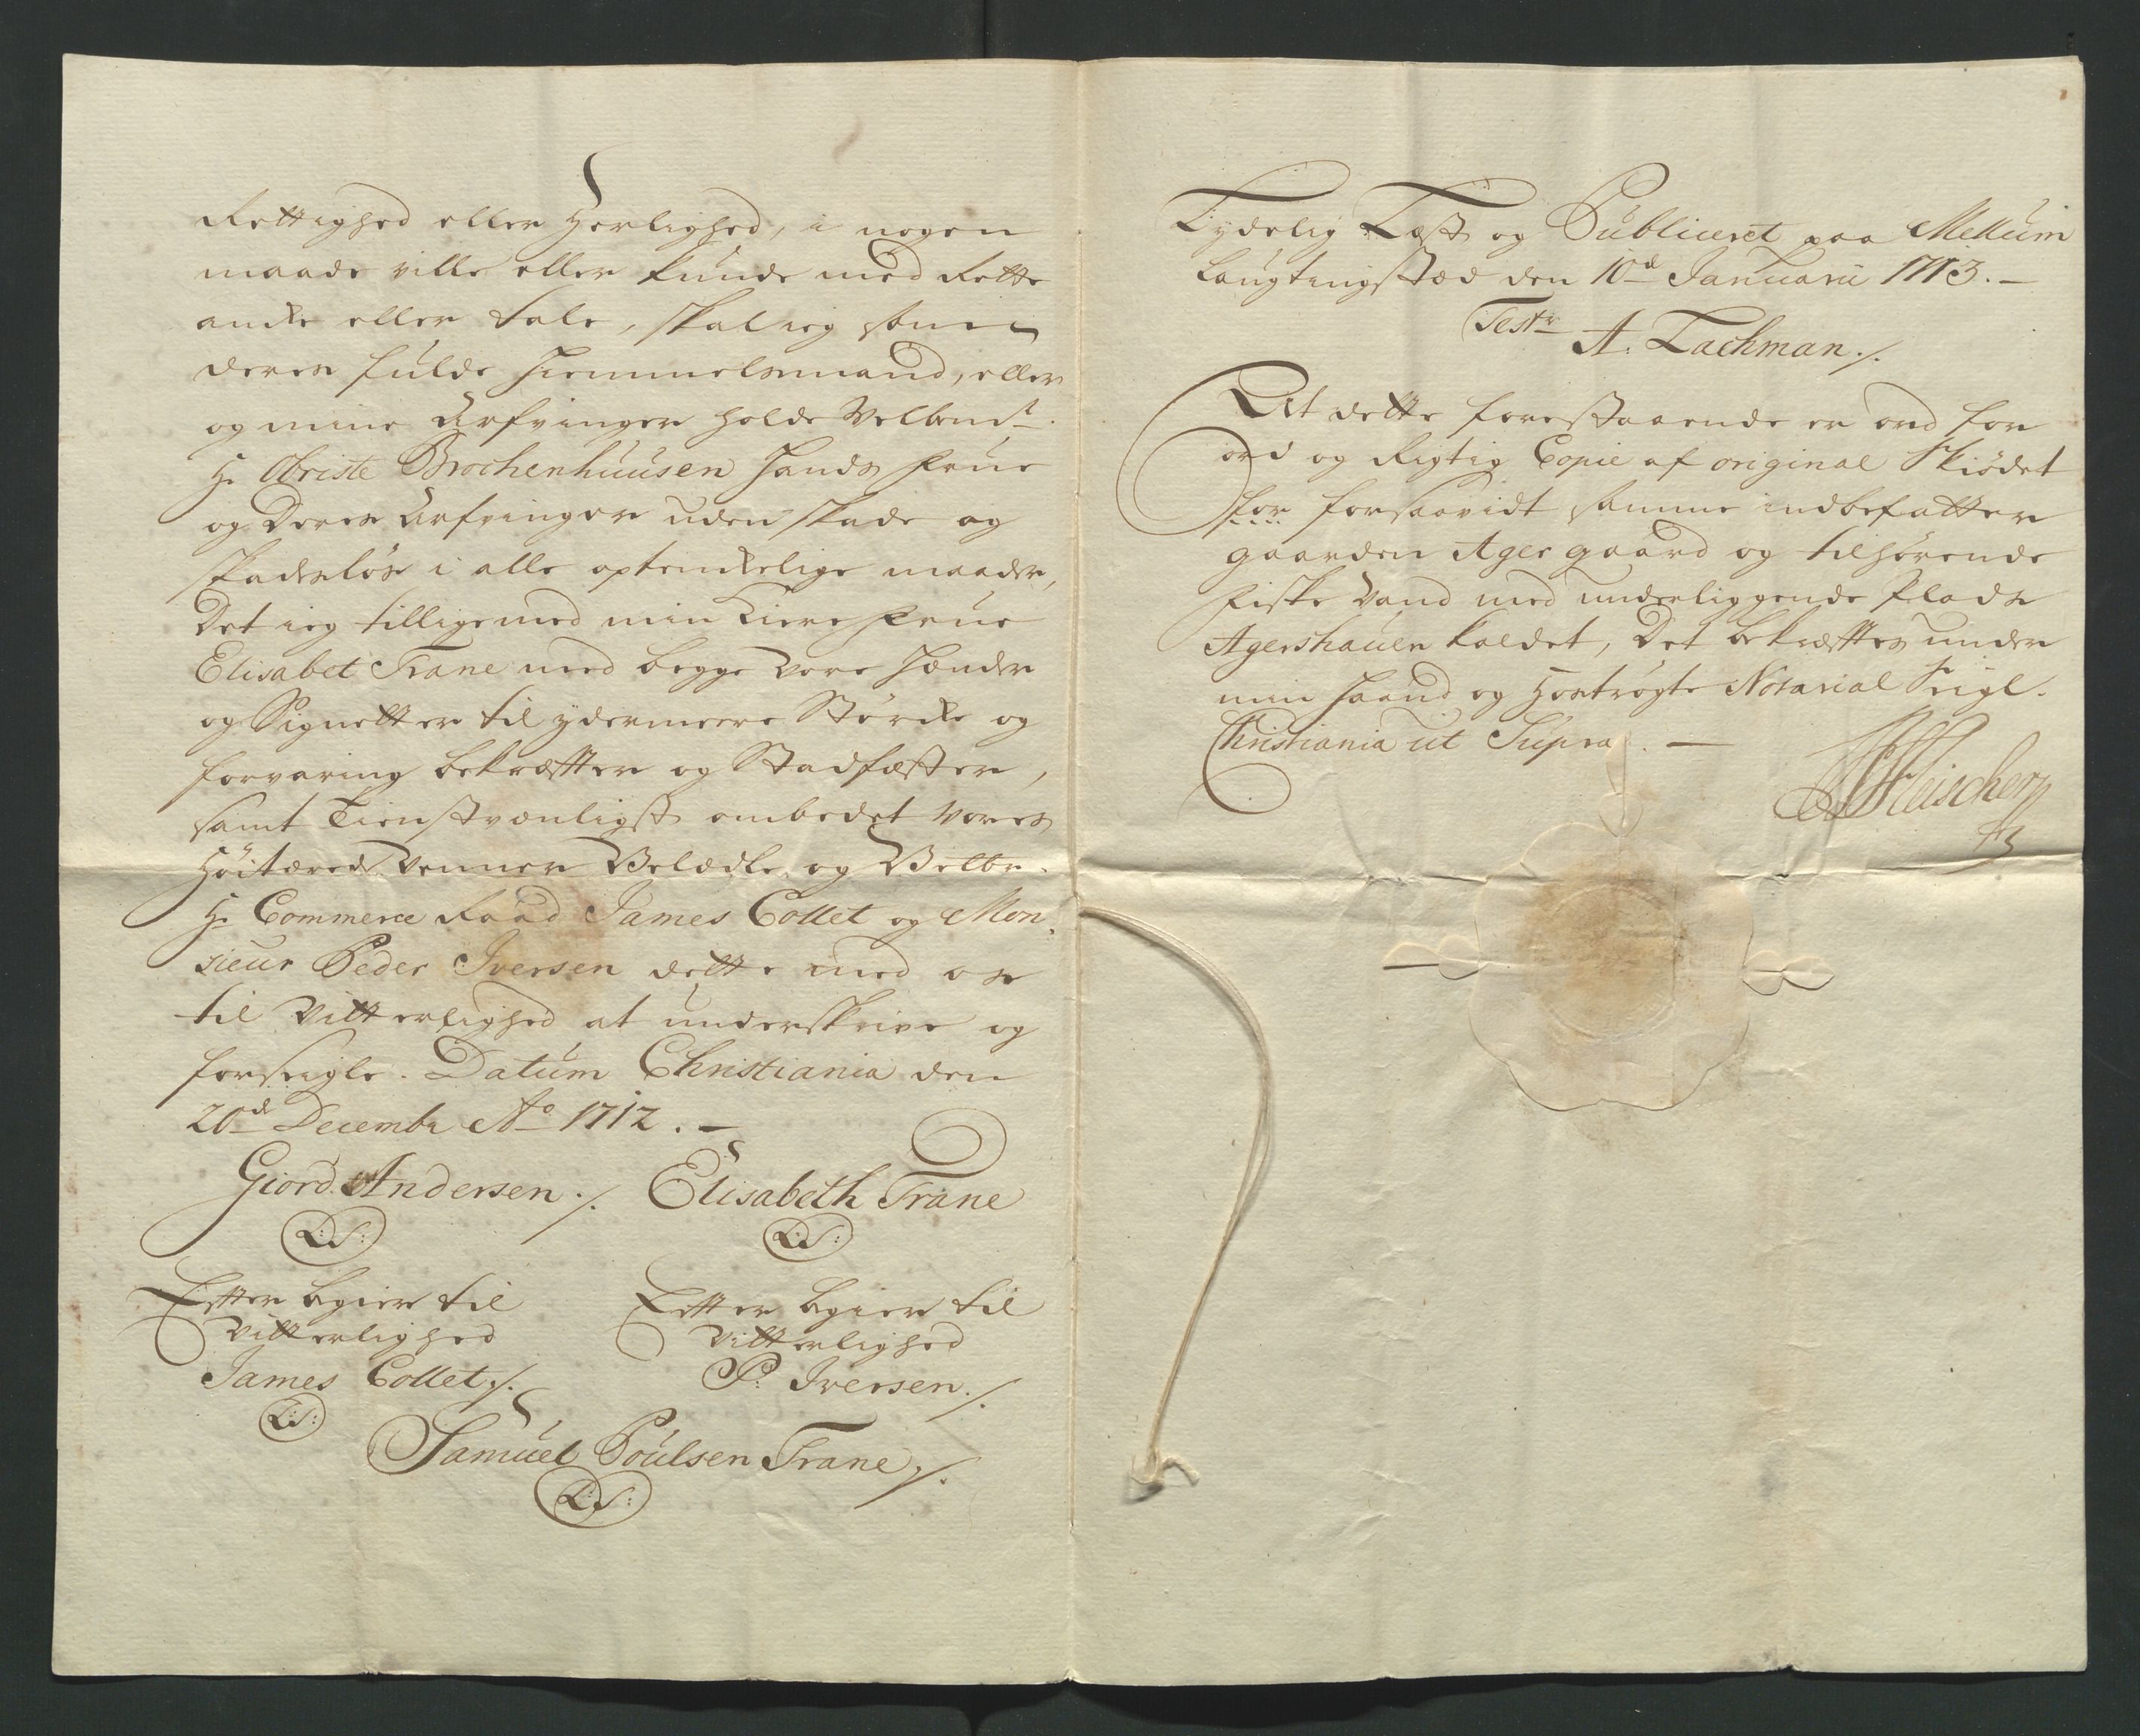 Rettighed eller Herlighed, i nogen
maade ville eller kunde med Rette
anke eller tale, skal ieg som
deres fulde Hiemmelsmand, eller
og mine Arfvinger holde Velbemt.
Hr. Obriste Brochenhuusen hands Frue
og Deres Arfvinger uden skade og
skadesløs i alle optenkelige maader,
Det ieg tilligemed min Kiere Frue
Elisabet Trane med begge vore Hænder
og Signetter til ydermeere Størke og
forvaring bekræfter og Stadfæster,
samt tienstvenligst ombedet vores
Høitæred. Venner Velædle og Velbr.
Hr. Commerce Raad James Collet og Mon,
sieur Peder Iversen dette med os
til Vitterlighed at underskrive og
forseigle. Datum Christiania den
20d Decembr Ao 1712. –
Giord Andersen ./. Elisabeth Trane
L:S: L:S:
Efter begier til Efter begier til
Vitterlighed Vitterlighed
James Collet ./. P: Iversen ./.
L:S:
Samuel Poulsen Trane ./.
L:S:
Tydelig Læst og Publiceret paa Mellum
Laugtingsstæd den 10d Januarii 1713. –
Testr A. Lachman ./.
At dette forestaaende er ord for
ord og Rigtig Copie af original Skiødet
for forsaavidt samme indbefatter
gaarden Ager gaard og tilhørende
Fiske Vand med underliggende Plads
Agershauen kaldet, Det bekræftes under
min Haand og Hostrøgte Notarial Seigl.
Christiania ut Supra. –
Fleischer